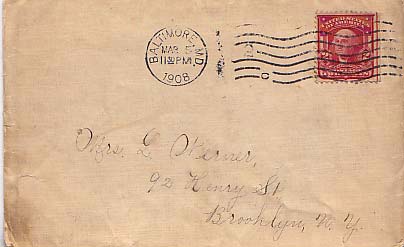 BALTIMORE, MD.
MAR 5
11 30 PM
1908
Mrs. L. Werner,
92 Henry St
Brooklyn, N.Y.